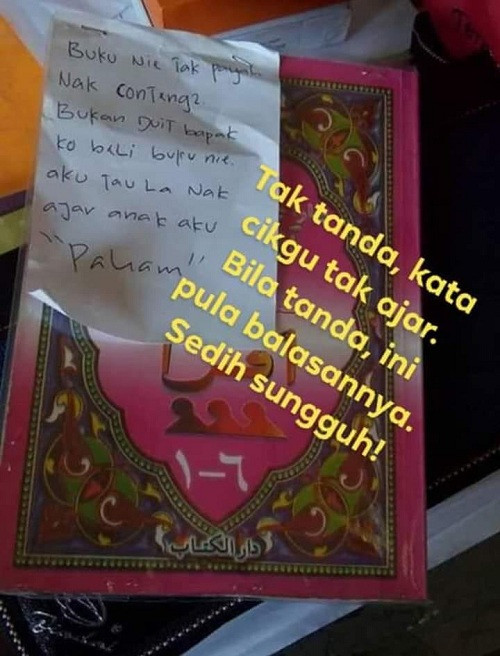 Buku Nie Tak payah
Nak conteng2.
Bukan Duit bapak
ko beli buku nie.
aku Tau La Nak
ajar anak aku
"Paham"
Tak tanda, kata
cikgu tak ajar.
Bila tanda, ini
pula balasannya.
Sedih sungguh!
١-٦
دار الكتاب